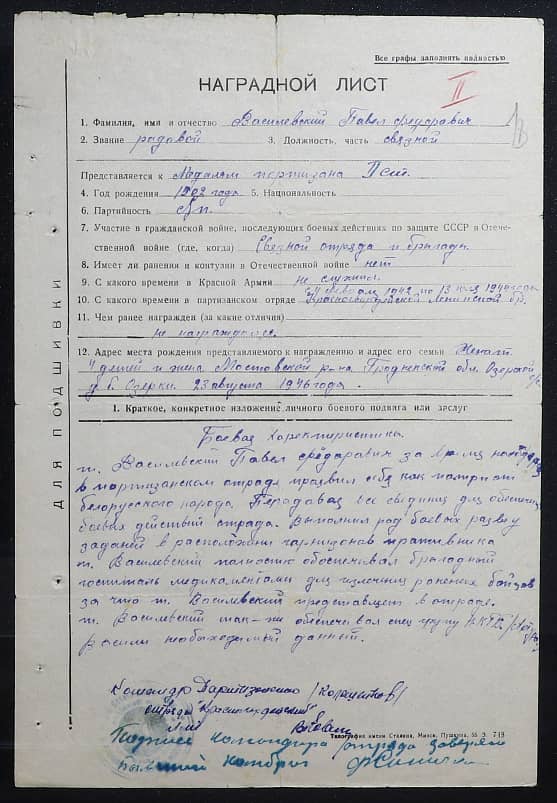 Все графы заполнять полностью
НАГРАДНОЙ ЛИСТ
II
1. Фамилия, имя и отчество Василевский Павел Федорович
2. Звание рядовой 3. Должность, часть связной
Представляется к Медалем партизана II ст.
4. Год рождения 1902 года 5. Национальность
6. Партийность б/п.
7. Участие в гражданской войне, последующих боевых действиях по защите СССР в Отече-
ственной войне (где, когда) Связной отряда и бригады
8. Имеет ли ранения и контузии в Отечественной войне нет
9. С какого времени в Красной Армии не служил
10. С какого времени в партизанском отряде 1942 по 13 июля 1944 года Красногвардейский Ленинской бр.
11. Чем ранее награжден (за какие отличия)
не награждался.
12. Адрес места рождения представляемого к награждению и адрес его семьи Женат.
4 детей и жена Мостовской р-на Гродненской обл. Озерской с/с
д. Б. Озерки. 23 августа 1946 года.
ДЛЯ ПОДШИВКИ
1. Краткое, конкретное изложение личного боевого подвига или заслуг
Боевая характеристика
т. Василевский Павел Федаравич за время
в партизанском отряде проявил себя как патриот
белорусского народа. Передавал все сведения для обеспечения
боевых действий отряда. Выполнял ряд боевых развед
заданий в расположении гарнизонов противника
т. Василевский полностю обеспечивал бригадной
госпиталь медикаментами для излечения раненых бойцов
за что т. Василевский представлен в отряде.
т. Василевский так-же обеспечивал спец группу
всеми необходимый данней.
Командир Партизанского
отряда "Красногвардейский"
Типография имени Сталина, Минск, Пушкина, 55 З. 713
Подпись командира отряда заверяю
Бывший комбриг